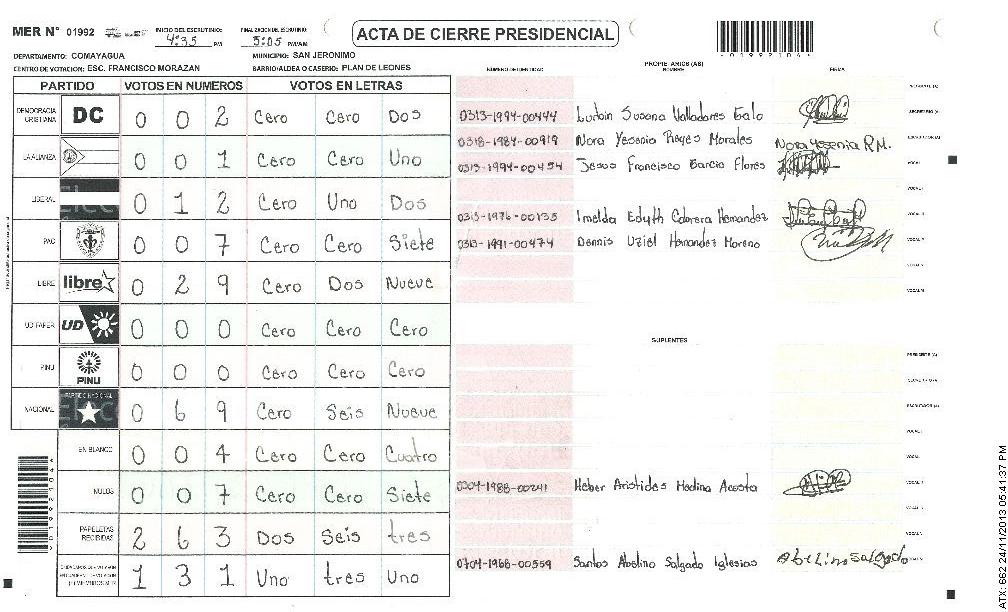 MER N° 01992 INICIO DEL ESCRUTINIO: 4:35 PM FINALIZACION DEL ESCRUTINIO: 5:05 PM/AM
ACTA DE CIERRE PRESIDENCIAL
DEPARTAMENTO: COMAYAGUA MUNICIPIO: SAN JERONIMO
CENTRO DE VOTACION: ESC. FRANCISCO MORAZAN BARRIO/ALDEA O CASERIO: PLAN DE LEONES
PARTIDO VOTOS EN NUMEROS VOTOS EN LETRAS
DEMOCRACIA CRISTIANA DC 0 0 2 Cero Cero Dos
LA ALIANZA 0 0 1 Cero Cero Uno
LIBERAL 0 1 2 Cero Uno Dos
PAC 0 0 7 Cero Cero Siete
LIBRE libre 0 2 9 Cero Dos Nueve
UD FAPER UD 0 0 0 Cero Cero Cero
PINU PINU 0 0 0 Cero Cero Cero
NACIONAL PARTIDO NACIONAL 0 6 9 Cero Seis Nueve
EN BLANCO 0 0 4 Cero Cero Cuatro
NULOS 0 0 7 Cero Cero Siete
PAPELETAS RECIBIDAS 2 6 3 Dos Seis tres
1 3 1 Uno tres Uno
NUMERO DE IDENTIDAD PROPIETARIOS (AS) NOMBRE FIRMA
0313-1994-00444 Susana Valladares Galo
0318-1984-00919 Nora Yesenia Reyes Morales Nora Ysenia R M.
0313-1994-00454 Jesus Francisco Garcia Flores
0315-1976-00135 Imelda Edyth Cabrera Hernandez
0313-1991-00474 Dennis Uziel Hernandez Moreno
SUPLENTES
0304-1988-00241 Heber Aristides Medina Acosta
0704-1968-00559 Santos Abelino Salgado Iglesias Abelino Salgado
ATX: 662 24/11/2013 05:41:37 PM